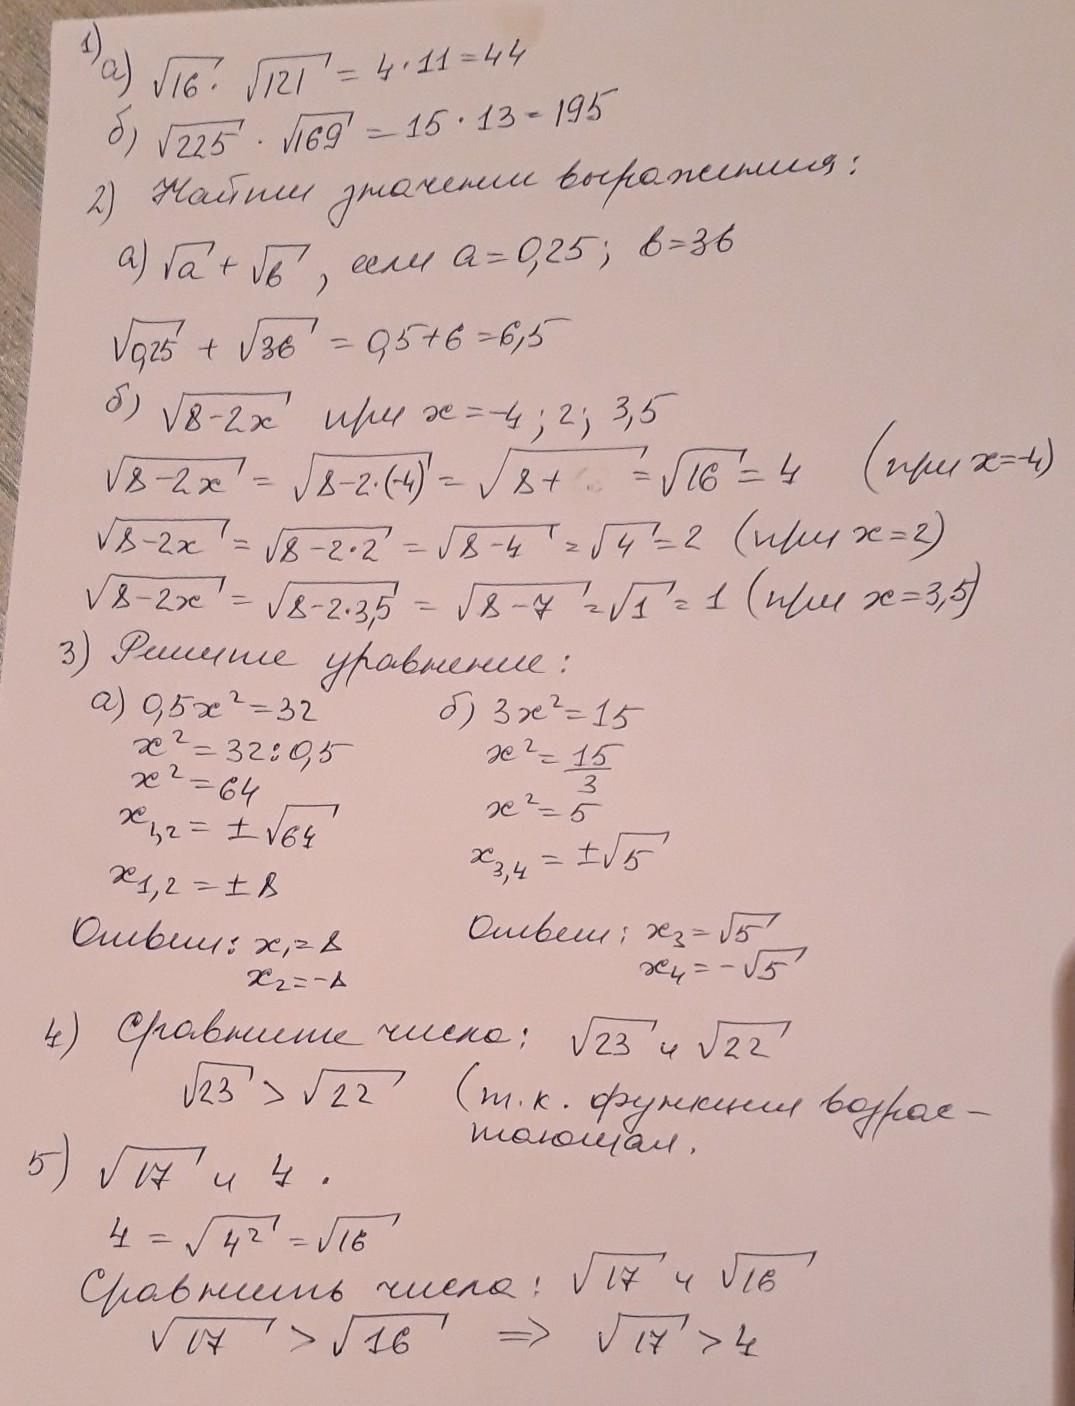 1) а) √16 · √121 = 4·11=44
б) √225 · √169 = 15·13=195
2) Найти значении выражения:
а) √a + √b, если a=0,25; b=36
√0,25 + √36 = 0,5+6=6,5
б) √8-2x при x=-4; 2; 3,5
√8-2x = √8-2·(-4) = √8+ = √16 = 4 (при x=-4)
√8-2x = √8-2·2 = √8-4 = √4 = 2 (при x=2)
√8-2x = √8-2·3,5 = √8-7 = √1 = 1 (при x=3,5)
3) Решите уравнение:
а) 0,5x²=32
x²=32:0,5
x²=64
x1,2 = ±√64
x1,2 = ±8
Ответ: x1=8
x2=-8
б) 3x²=15
x²=15/3
x²=5
x3,4 = ±√5
Ответ: x3=√5
x4=-√5
4) Сравните числа: √23 и √22
√23 > √22 (т.к. функция возрас-
тающая.
5) √17 и 4.
4 = √4² = √16
Сравнить числа: √17 и √16
√17 > √16 ⇒ √17 > 4